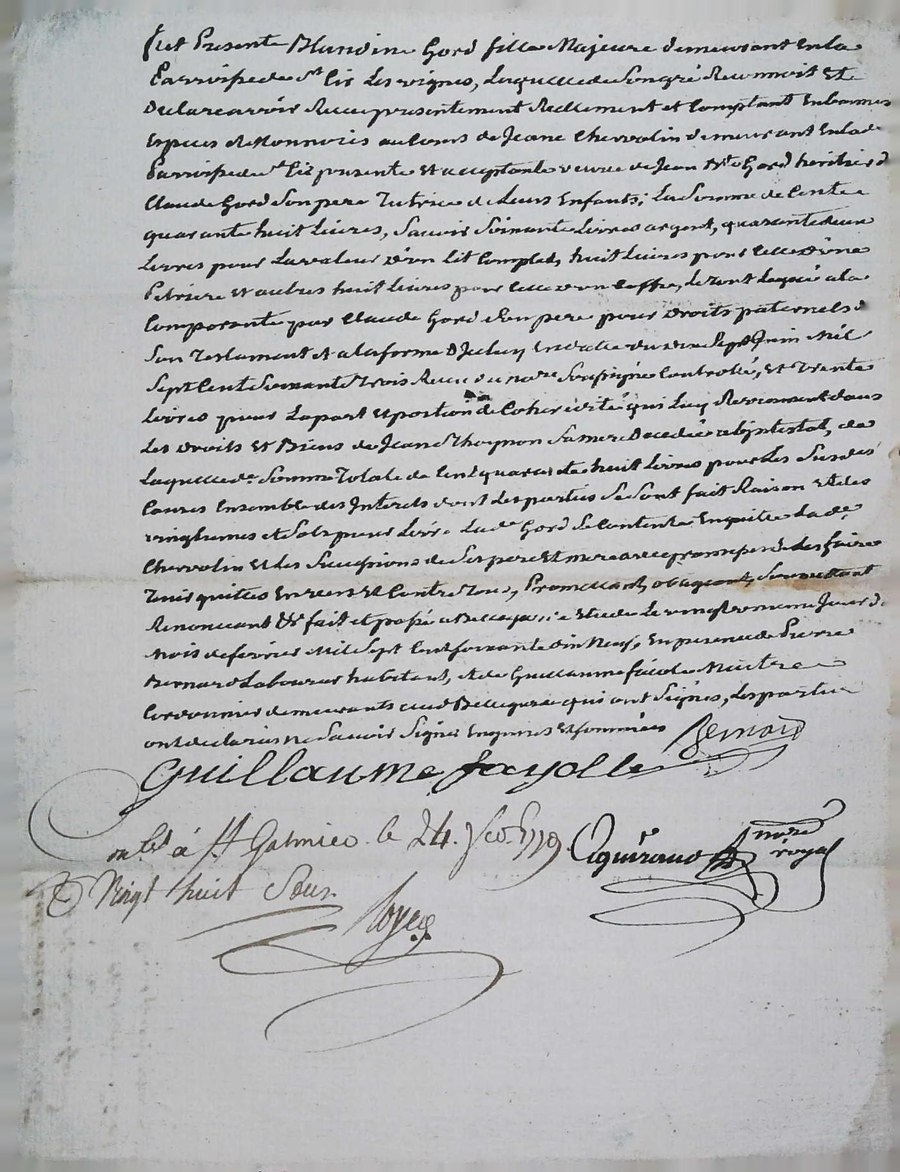 fut Presente Blandine Gord fille Majeure demeurant en la
Parroisse de St Cir Les vignes, Laquelle de Son gré Reconnoit Et
Declare avoir Receu presentement Reellement et Comptant En bonnes
Especes de Monnoies au Cours de Jeane Chervolin demeurant En lade
Parroisse de St Cir presente Et acceptante veuve de Jean Gord heritier d
Claude Gord Son pere Tutrice de Leurs Enfants; La Somme de Cent
quarante huit Livres, Savoir Soixante Livres argent, quarante deux
Livres pour La valeur d'un Lit Complet, huit Livres pour Celle D'une
Petriere Et autres huit Livres pour Celle d'un Coffre, le tout Legué a la
Comparante par Claude Gord Son pere pour Droits paternels d
Son Testament Et a la forme D'iceluy En datte du dix Sept Juin Mil
Sept Cent Soixante Trois Receu du nore Soussigné Controllé, Et Trente
Livres pour La part Et portion de Coheredité qui Luy Reviennent dans
Les Droits Et Biens de Jeane Thoynon Sa mere Decedée abjntestat, de
Laquelle de Somme Totale de Cent quarante huit Livres pour Les Susdes
Causes Ensemble des Interets dont Les parties Se Sont fait Raison Et des
vingtiemes et Sols pour Livre La de Gord Se Contente En quitte La de
Chervolin Et Les Successions de Ses pere Et mere avec promesse de Les faire
Tenir quittes Envers Et Contre Tous, Promettant, obligeant, Soumettant
Renoncant &c fait et passé a Bellegarde Etude Le vingt Jour d
Mois de fevrier Mil Sept Cent Soixante dix Neuf, En presence de Pierre
Bernard Laboureur habitant, et de Guillaume fayolle Maitre
Cordonnier demeurants aud Bellegarde qui ont Signés, Les parties
ont declarés ne Savoir Signer Enquises Et Sommées Bernard
Guillaume fayolle
à St Galmier le 24. 1779 Ciquirand nore royal
Vingt huit Sous.
Royer